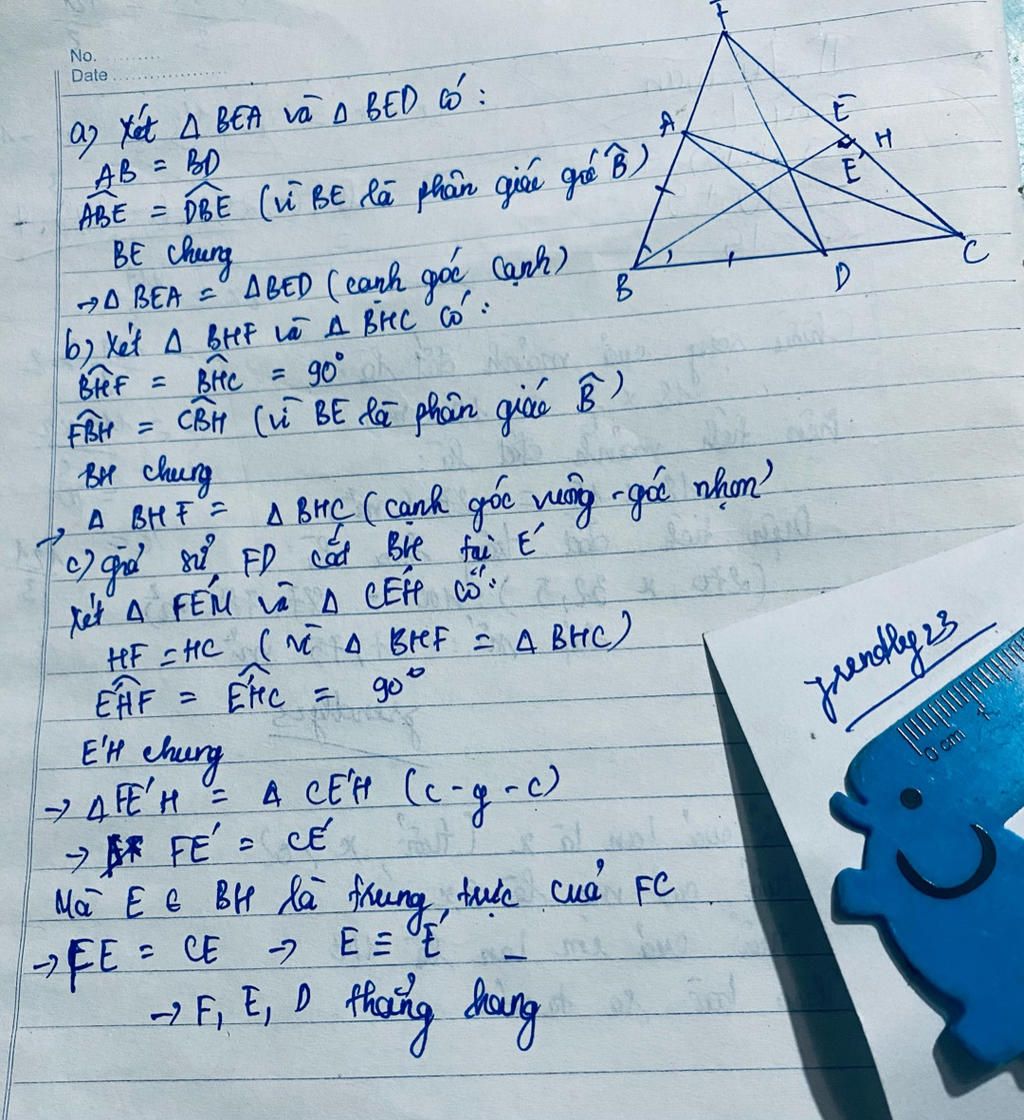 No. ..........
Date ..................
a) Xét Δ BEA và Δ BED có :
AB = BD
ABE = DBE (vì BE là phân giác góc B)
BE chung
→ Δ BEA = ΔBED (cạnh góc cạnh)
b) Xét Δ BHF và Δ BHC có :
BHF = BHC = 90°
FBH = CBH (vì BE là phân giác B)
BH chung
→ Δ BHF = Δ BHC (cạnh góc vuông - góc nhọn)
c) giả sử FD cắt BH tại E'
Xét Δ FE'H và Δ CE'H có :
HF = HC (vì Δ BHF = Δ BHC)
E'HF = E'HC = 90°
E'H chung
→ Δ FE'H = Δ CE'H (c-g-c)
→ FE' = CE'
Mà E ∈ BH là trung trực của FC
→ FE = CE → E ≡ E'
→ F, E, D thẳng hàng
F
A
E
H
E'
B
D
C
0 cm